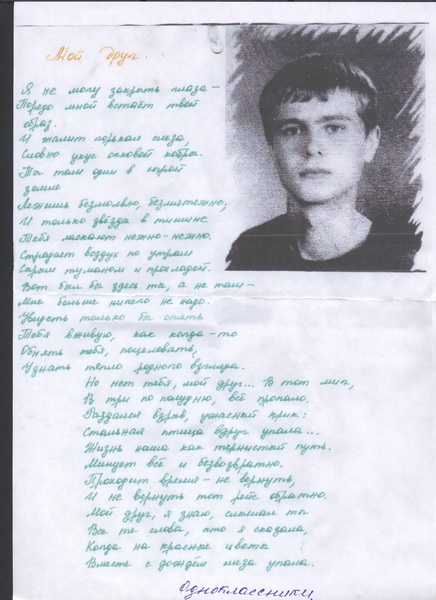 Мой друг.
Я не могу закрыть глаза –
Передо мной встаёт твой
образ.
И жалит горькая слеза,
Словно укус очковой кобры.
Ты там один в сырой
земле
Лежишь безмолвно, безмятежно;
И только звёзды в тишине
Тебя ласкают нежно-нежно.
Страдает воздух по утрам
Серым туманом и прохладой.
Вот был бы здесь ты, а не там –
Мне больше ничего не надо.
Увидеть только бы опять
Тебя вживую, как когда-то
Обнять тебя, поцеловать,
Узнать тепло родного взгляда.
Но нет тебя, мой друг... В тот миг,
В три по полудню, всё пропало.
Раздался взрыв, ужасный крик:
Стальная птица вдруг упала...
Жизнь наша как тернистый путь.
Минует всё и безвозвратно.
Проходит время – не вернуть,
И не вернуть тот рейс обратно.
Мой друг, я знаю, слышал ты
Все те слова, что я сказала,
Когда на красные цветы
Вместе с дождём слеза упала.
Одноклассники.